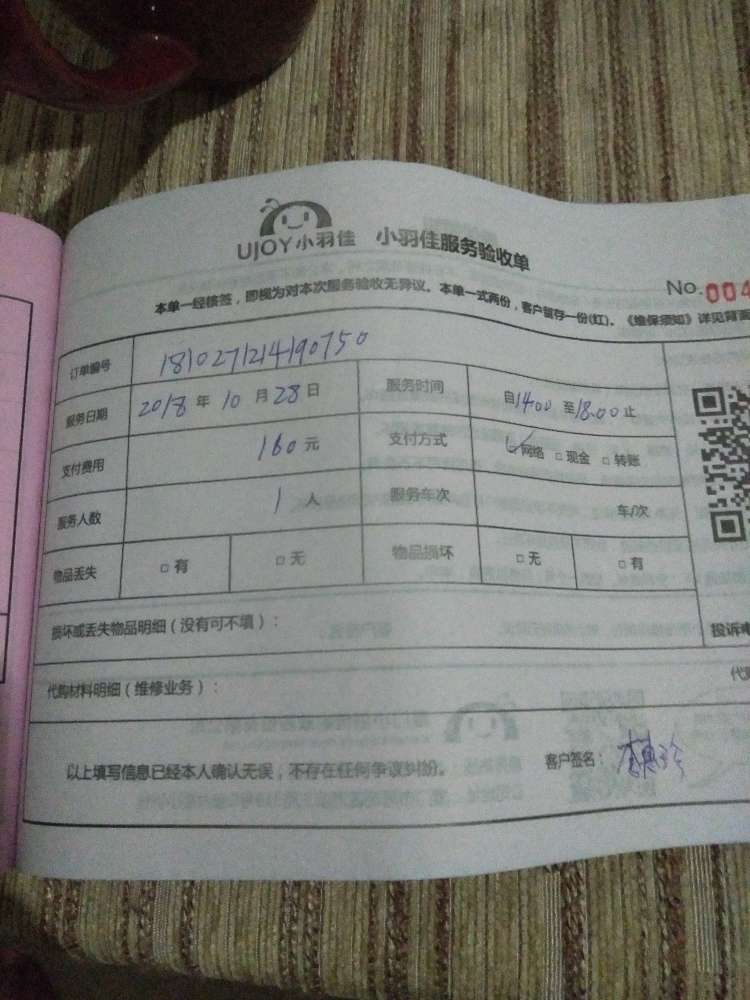 UJOY小羽佳 小羽佳服务验收单
No.004
本单一经核签，即视为对本次服务验收无异议。本单一式两份，客户留存一份(红)。《维保须知》详见背面
订单编号 1810271214190750
服务日期 2018年10月28日 服务时间 自14:00至18:00止
支付费用 160元 支付方式 ☑网络 □现金 □转账
服务人数 1人 服务车次 车/次
物品丢失 □有 □无 物品损坏 □无 □有
损坏或丢失物品明细（没有可不填）： 投诉电
代购材料明细（维修业务）： 代购
以上填写信息已经本人确认无误，不存在任何争议纠纷。 客户签名：